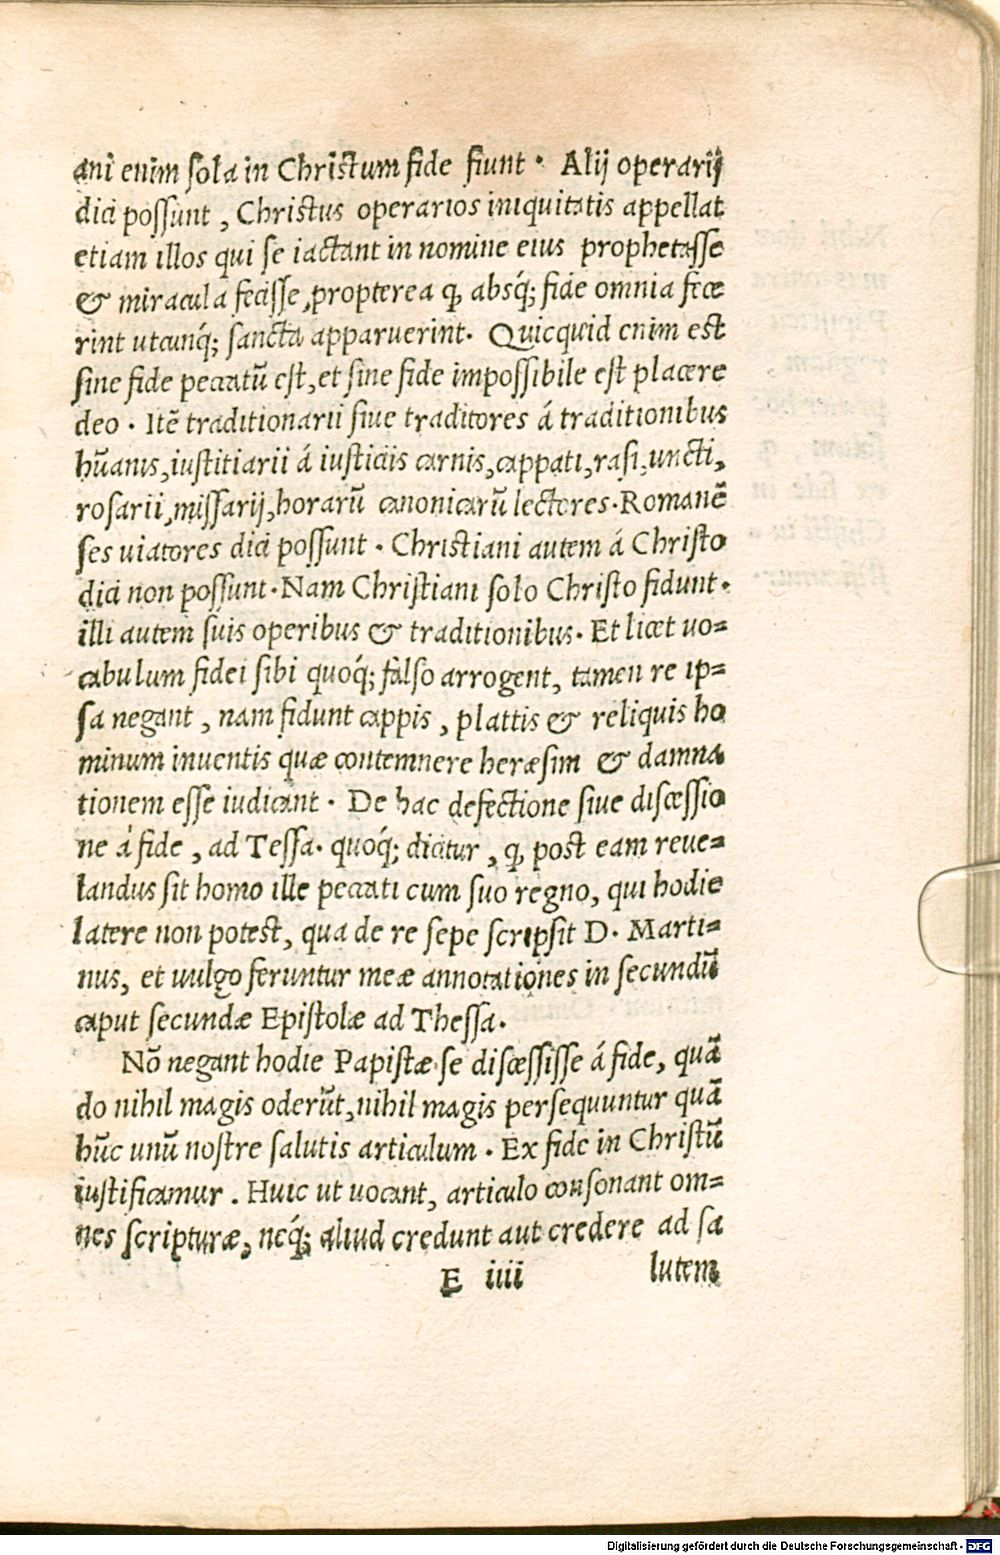 ani enim sola in Christum fide fiunt · Alij operarij
dici possunt , Christus operarios iniquitatis appellat
etiam illos qui se iactant in nomine eius prophetasse
& miracula fecisse, propterea ꝙ absq́; fide omnia fece
rint utcunq́; sancta apparuerint. Quicquid enim est
sine fide peccatū est, et sine fide impossibile est placere
deo . Itē traditionarii siue traditores á traditionibus
hūanis, iustitiarii á iusticiis carnis, cappati, rasi, uncti,
rosarii, missarij, horarū canonicarū lectores. Romanē
ses uiatores dici possunt . Christiani autem á Christo
dici non possunt. Nam Christiani solo Christo fidunt.
illi autem suis operibus & traditionibus. Et licet uo=
cabulum fidei sibi quoq́; falso arrogent, tamen re ip=
sa negant , nam fidunt cappis , plattis & reliquis ho
minum inuentis quæ contemnere heræsim & damna
tionem esse iudicant . De hac defectione siue discessio
ne á fide , ad Tessa. quoq́; dicitur , ꝙ post eam reue=
landus sit homo ille peccati cum suo regno, qui hodie
latere non potest, qua de re sepe scripsit D. Marti=
nus, et uulgo feruntur meæ annotationes in secundū
caput secundæ Epistolæ ad Thessa.
Nō negant hodie Papistæ se discessisse á fide, quā
do nihil magis oderūt, nihil magis persequuntur quā
hūc unū nostre salutis articulum . Ex fide in Christū
iustificamur . Huic ut uocant, articulo consonant om=
nes scripturæ, neq́; aliud credunt aut credere ad sa
E iiii lutem
Digitalisierung gefördert durch die Deutsche Forschungsgemeinschaft - DFG